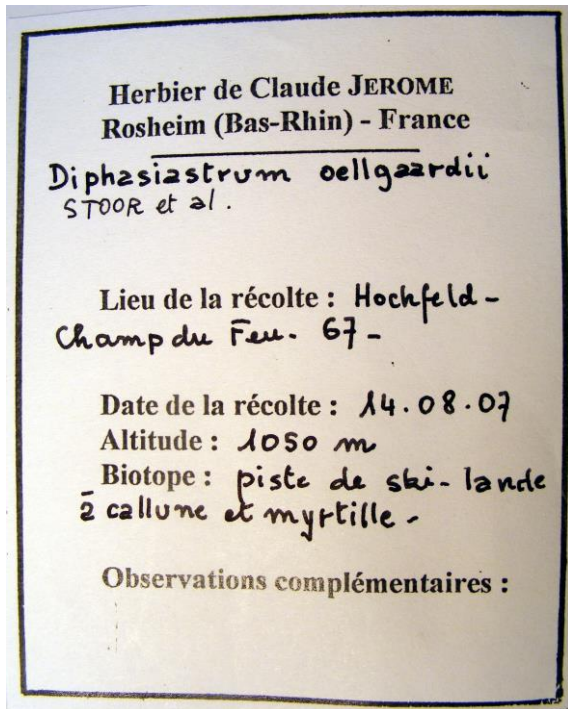 Herbier de Claude JEROME
Rosheim (Bas-Rhin) - France
Diphasiastrum oellgaardii
STOOR et al.
Lieu de la récolte : Hochfeld -
Champ du Feu. 67 -
Date de la récolte : 14.08.07
Altitude : 1050 m
Biotope : piste de ski - lande
à callune et myrtille -
Observations complémentaires :